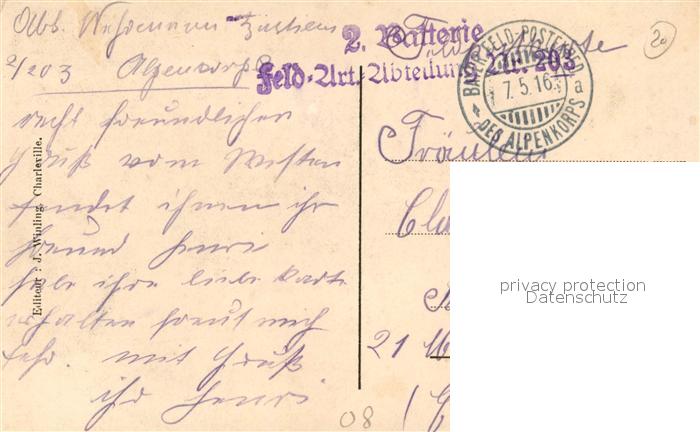 Abs. Wehrmann
2/203 Alpenkorps
2. Batterie
Feld-Art.-Abteilung Nr. 203
BAYER. FELD-POSTEXP.
7.5.16 a
DES ALPENKORPS
20
recht freundlichen
Gruß vom Westen
sendet ihnen ihr
freund Henri
habe ihre liebe Karte
erhalten freut mich
sehr. mit Gruß
ihr Henri
Editeur: J. Winling, Charleville.
Fräulein
Cla
21
08
privacy protection
Datenschutz